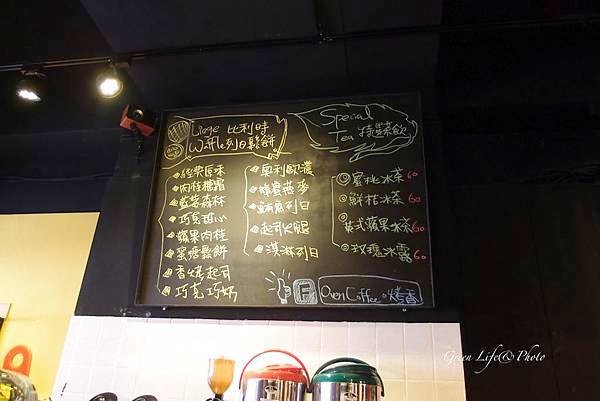 Liege 比利時
Waffle列日鬆餅
堅果原味
肉桂糖霜
藍莓森林
巧克甜心
蘋果肉桂
蜜糖鬆餅
香烤起司
巧克巧奶
奧利歐濃
蜂蜜燕麥
鮪魚列日
起司火腿
淇淋列日
Special
Tea 特調茶飲
蜜桃冰茶 60
鮮柑冰茶 60
英式蘋果冰茶 60
玫瑰冰露 60
Oven Coffee 烤香
Green Life& Photo